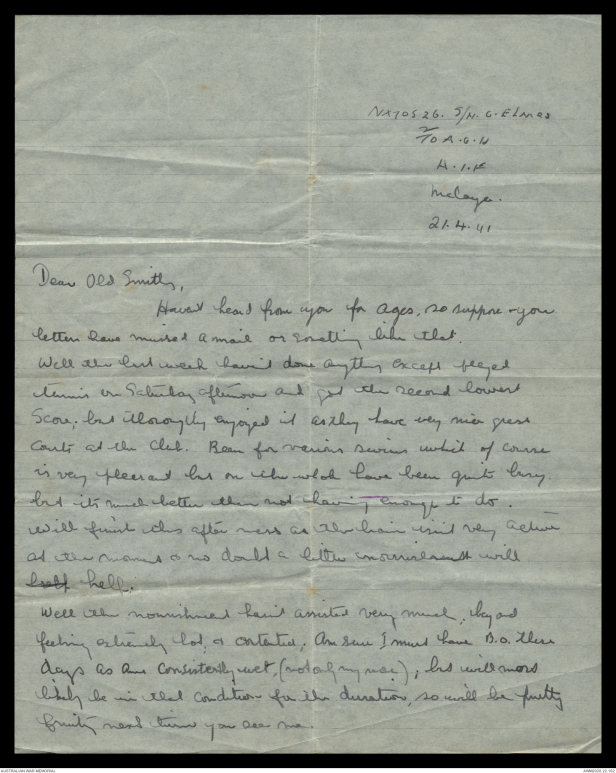 NX70526. S/N. G. Elmes
2/10 A.G.H
A.I.F
Malaya.
21.4.41
Dear Old Smithy,
Havent heard from you for ages, so suppose your
letters have missed a mail or something like that.
Well the last week havent done anything except played
tennis on Saturday afternoon and got the second lowest
score, but thoroughly enjoyed it as they have very nice grass
courts at the club. Been for various swims which of course
is very pleasant but on the whole have been quite busy.
but its much better than not having enough to do.
Will finish this after mess as the brain isnt very active
at the moment & no doubt a little nourishment will
help.
Well the nourishment hasnt assisted very much, beyond
feeling extremely hot, & contented, Am sure I must have B.O. these
days as am consistently wet, (not only my nose), but will most
likely be in that condition for the duration, so will be pretty
fruity next time you see me.
AUSTRALIAN WAR MEMORIAL